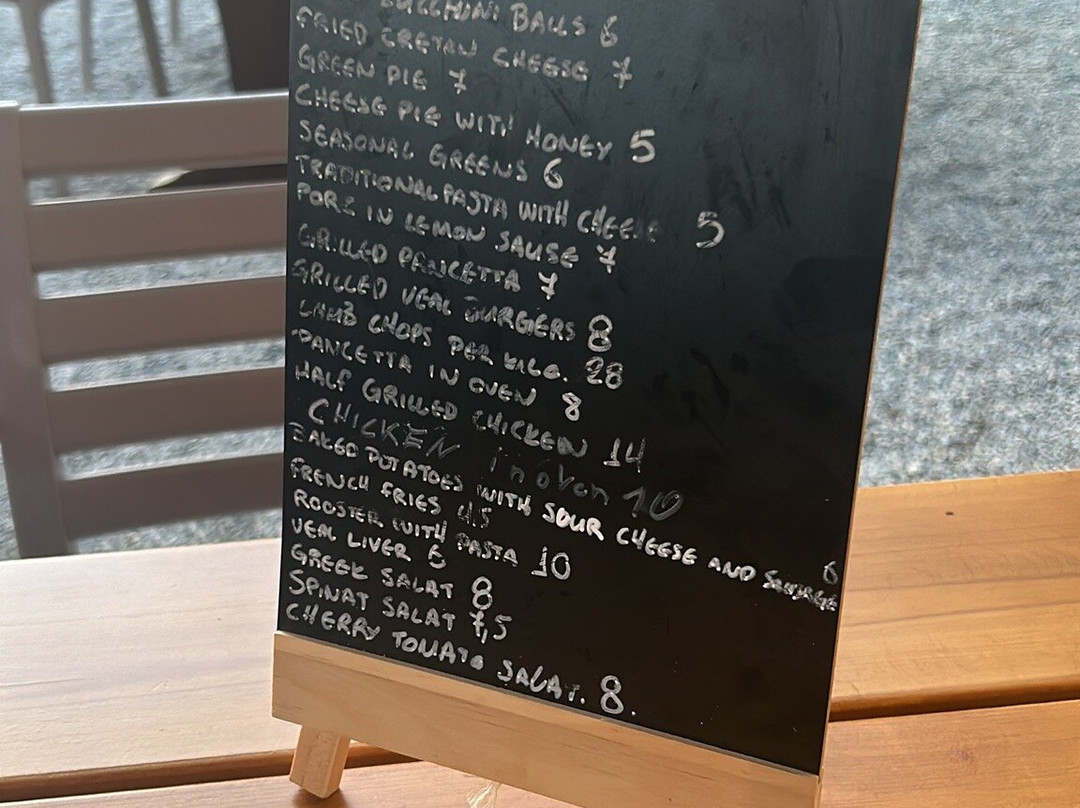 ZUCCHINI BALLS 6
FRIED CRETAN CHEESE 7
GREEN PIE 7
CHEESE PIE WITH HONEY 5
SEASONAL GREENS 6
TRADITIONAL PASTA WITH CHEESE 5
PORK IN LEMON SAUSE 7
GRILLED PANCETTA 7
GRILLED VEAL BURGERS 8
LAMB CHOPS PER KILO. 28
PANCETTA IN OVEN 8
HALF GRILLED CHICKEN 14
CHICKEN in oven 10
BAKED POTATOES WITH SOUR CHEESE AND SAUSAGE 6
FRENCH FRIES 4.5
ROOSTER WITH PASTA 10
VEAL LIVER 6
GREEK SALAT 8
SPINAT SALAT 7,5
CHERRY TOMATO SALAT. 8.